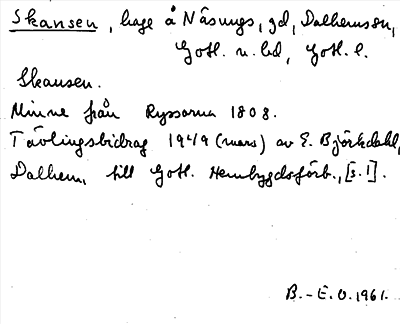 Skansen, hage å Näsungs, gd, Dalhems sn,
Gotl. n. hd, Gotl. l.
Skansen.
Minne från Ryssarna 1808.
Tävlingsbidrag 1949 (mars) av E. Björkdahl,
Dalhem, till Gotl. Hembygdsförb., [s. 1].
B.-E.O. 1961.